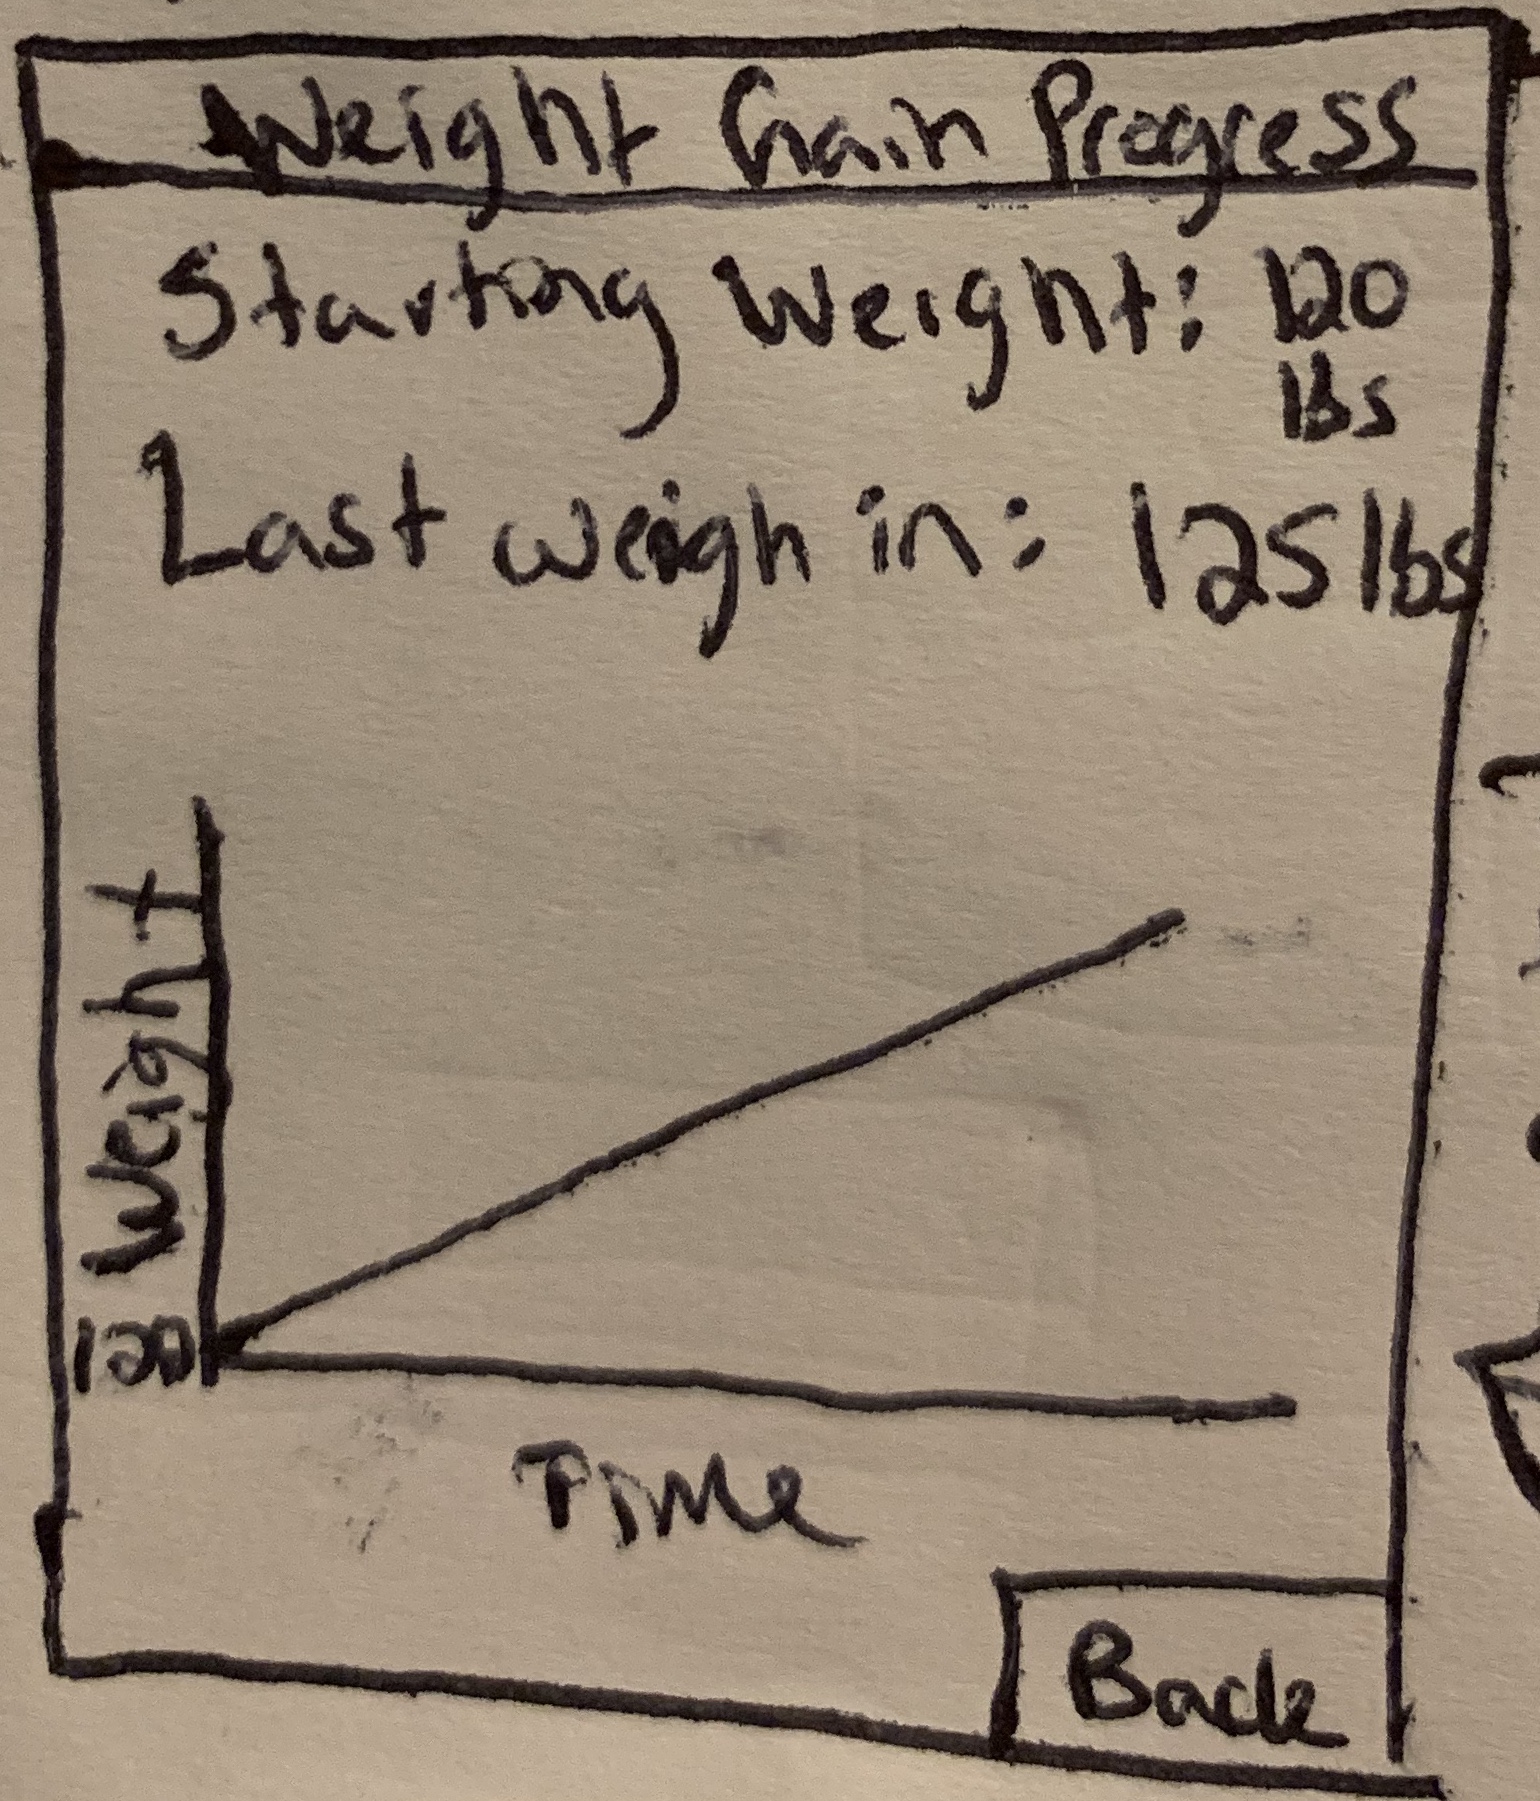 Weight Gain Progress
Starting Weight: 120
lbs
Last weigh in: 125 lbs
Weight
120
Time
Back